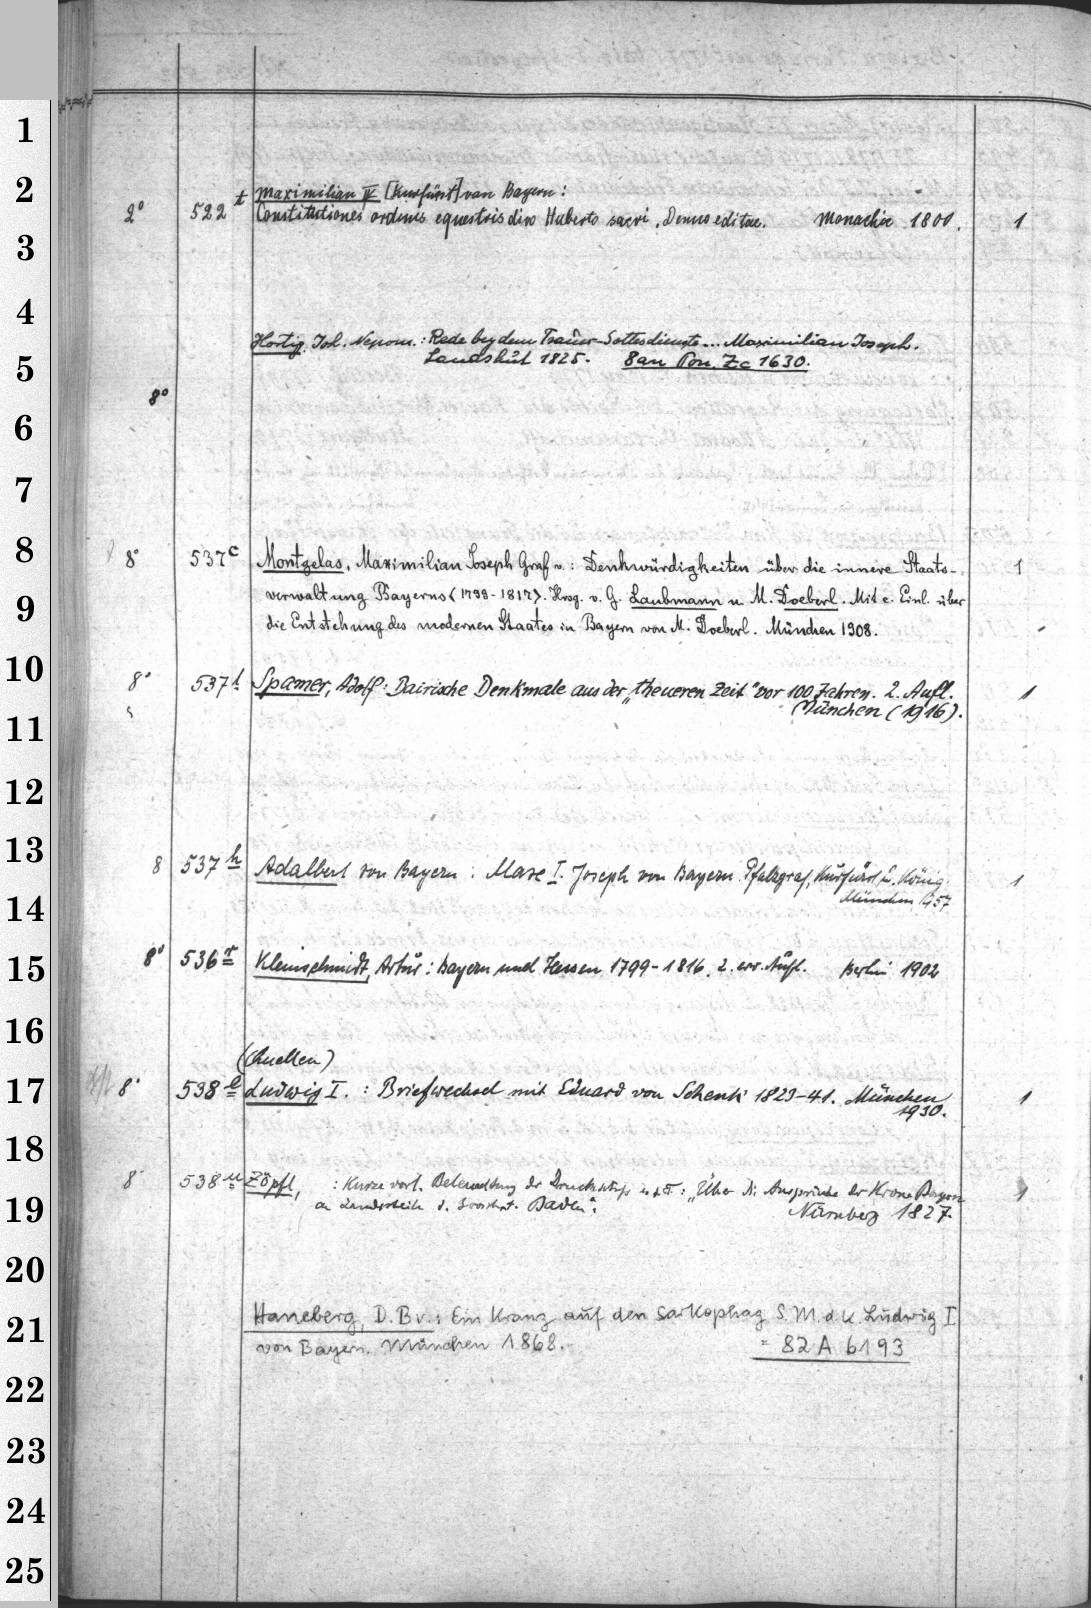 1
2
3
4
5
6
7
8
9
10
11
12
13
14
15
16
17
18
19
20
21
22
23
24
25
Maximilian IV [Kurfürst] von Bayern:
2° 522 t Constitutiones ordinis equestris divo Huberto sacri. Denuo editae. Monachii 1800. 1
Hortig, Joh. Nepom.: Rede bey dem Trauer-Gottesdienste... Maximilian Joseph.
Landshut 1825. 8an Pon. Zc 1630.
8°
8° 537 c Montgelas, Maximilian Joseph Graf v.: Denkwürdigkeiten über die innere Staats- 1
verwaltung Bayerns <1799-1817>. Hrsg. v. G. Laubmann u. M. Doeberl. Mit e. Einl. über
die Entstehung des modernen Staates in Bayern von M. Doeberl. München 1908.
8° 537 f Spamer, Adolf: Bairische Denkmale aus der „theueren Zeit" vor 100 Jahren. 2. Aufl. 1
München (1916).
8 537 h Adalbert von Bayern: Max I. Joseph von Bayern. Pfalzgraf, Kurfürst u. König. 1
München 1957
8° 536 r Kleinschmidt, Artur: Bayern und Hessen 1799-1816. 2. Aufl. Berlin 1902
(Quellen)
8° 538 e Ludwig I.: Briefwechsel mit Eduard von Schenk 1823-41. München 1
1930.
8° 538 u Zöpfl, : Kurze vorl. Beleuchtung der Druckschrift : „Über die Ansprüche der Krone Bayern 1
an Landestheile d. Baden". Nürnberg 1827.
Haneberg, D. B. v.: Ein Kranz auf den Sarkophag S. M. d K. Ludwig I
von Bayern. München 1868. = 82 A 6193